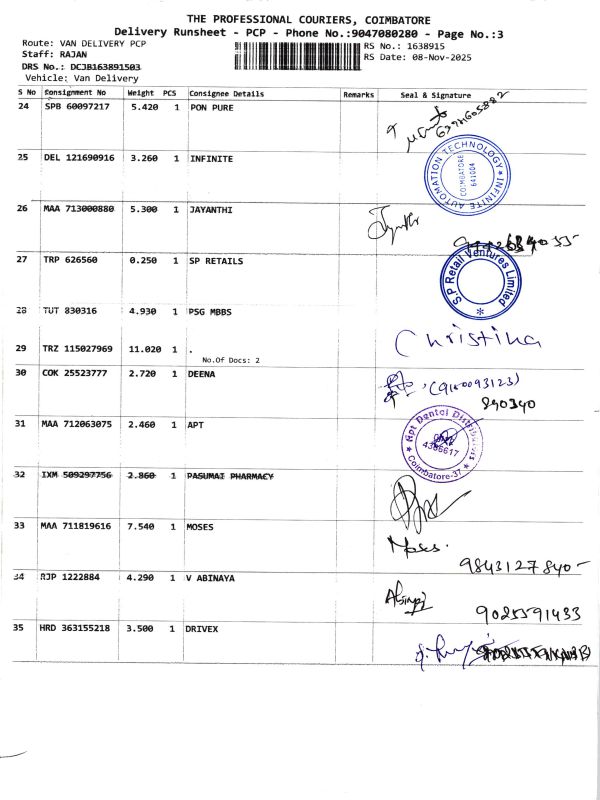 THE PROFESSIONAL COURIERS, COIMBATORE
Delivery Runsheet - PCP - Phone No.:9047080280 - Page No.:3
Route: VAN DELIVERY PCP
RS No.: 1638915
Staff: RAJAN
RS Date: 08-Nov-2025
DRS No.: DCJB163891503
Vehicle: Van Delivery
S No Consignment No Weight PCS Consignee Details Remarks Seal & Signature
24 SPB 60097217 5.420 1 PON PURE
25 DEL 121690916 3.260 1 INFINITE
INFINITE AUTOMATION TECHNOLOGY
COIMBATORE
641004
26 MAA 713000880 5.300 1 JAYANTHI
27 TRP 626560 0.250 1 SP RETAILS
S.P Retail Ventures Limited
28 TUT 830316 4.930 1 PSG MBBS
Christina
29 TRZ 115027969 11.020 1 .
No.Of Docs: 2
30 COK 25523777 2.720 1 DEENA
(9100093123)
890340
31 MAA 712063075 2.460 1 APT
Apt Dental
4386617
Coimbatore-37
32 IXM 509297756 2.860 1 PASUMAI PHARMACY
33 MAA 711819616 7.540 1 MOSES
Moses.
9843127840
34 RJP 1222884 4.290 1 V ABINAYA
9025591433
35 HRD 363155218 3.500 1 DRIVEX